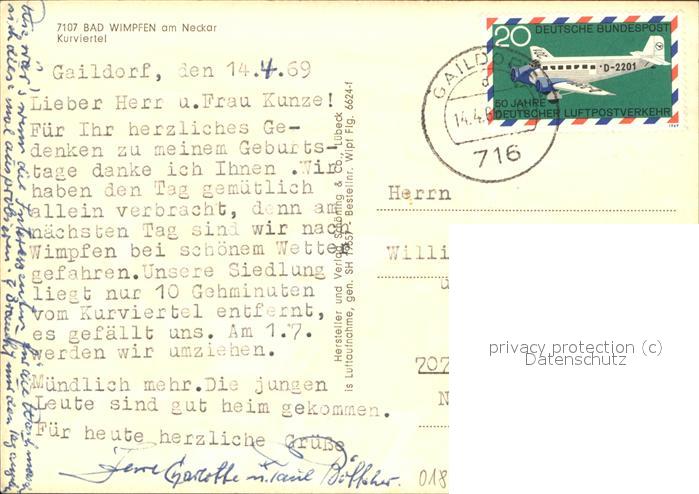 7107 BAD WIMPFEN am Neckar
Kurviertel
Gaildorf, den 14.4.69
Lieber Herr u.Frau Kunze!
Für Ihr herzliches Ge-
denken zu meinem Geburts-
tage danke ich Ihnen .Wir
haben den Tag gemütlich
allein verbracht, denn am
nächsten Tag sind wir nach
Wimpfen bei schönem Wetter
gefahren.Unsere Siedlung
liegt nur 10 Gehminuten
vom Kurviertel entfernt,
es gefällt uns. Am 1.7.
werden wir umziehen.
Mündlich mehr.Die jungen
Leute sind gut heim gekommen.
Für heute herzliche Grüße
Charlotte u. Paul Böttcher.
Hersteller und Verlag Schöning & Co., Lübeck
Luftaufnahme, gen. SH
Bestellnr. Wipf Fig. 6624-f
20 DEUTSCHE BUNDESPOST
D-2201
50 JAHRE
DEUTSCHER LUFTPOSTVERKEHR
1969
GAILDORF
14.4.
716
Herrn
Willi
707
N
018
privacy protection (c)
Datenschutz